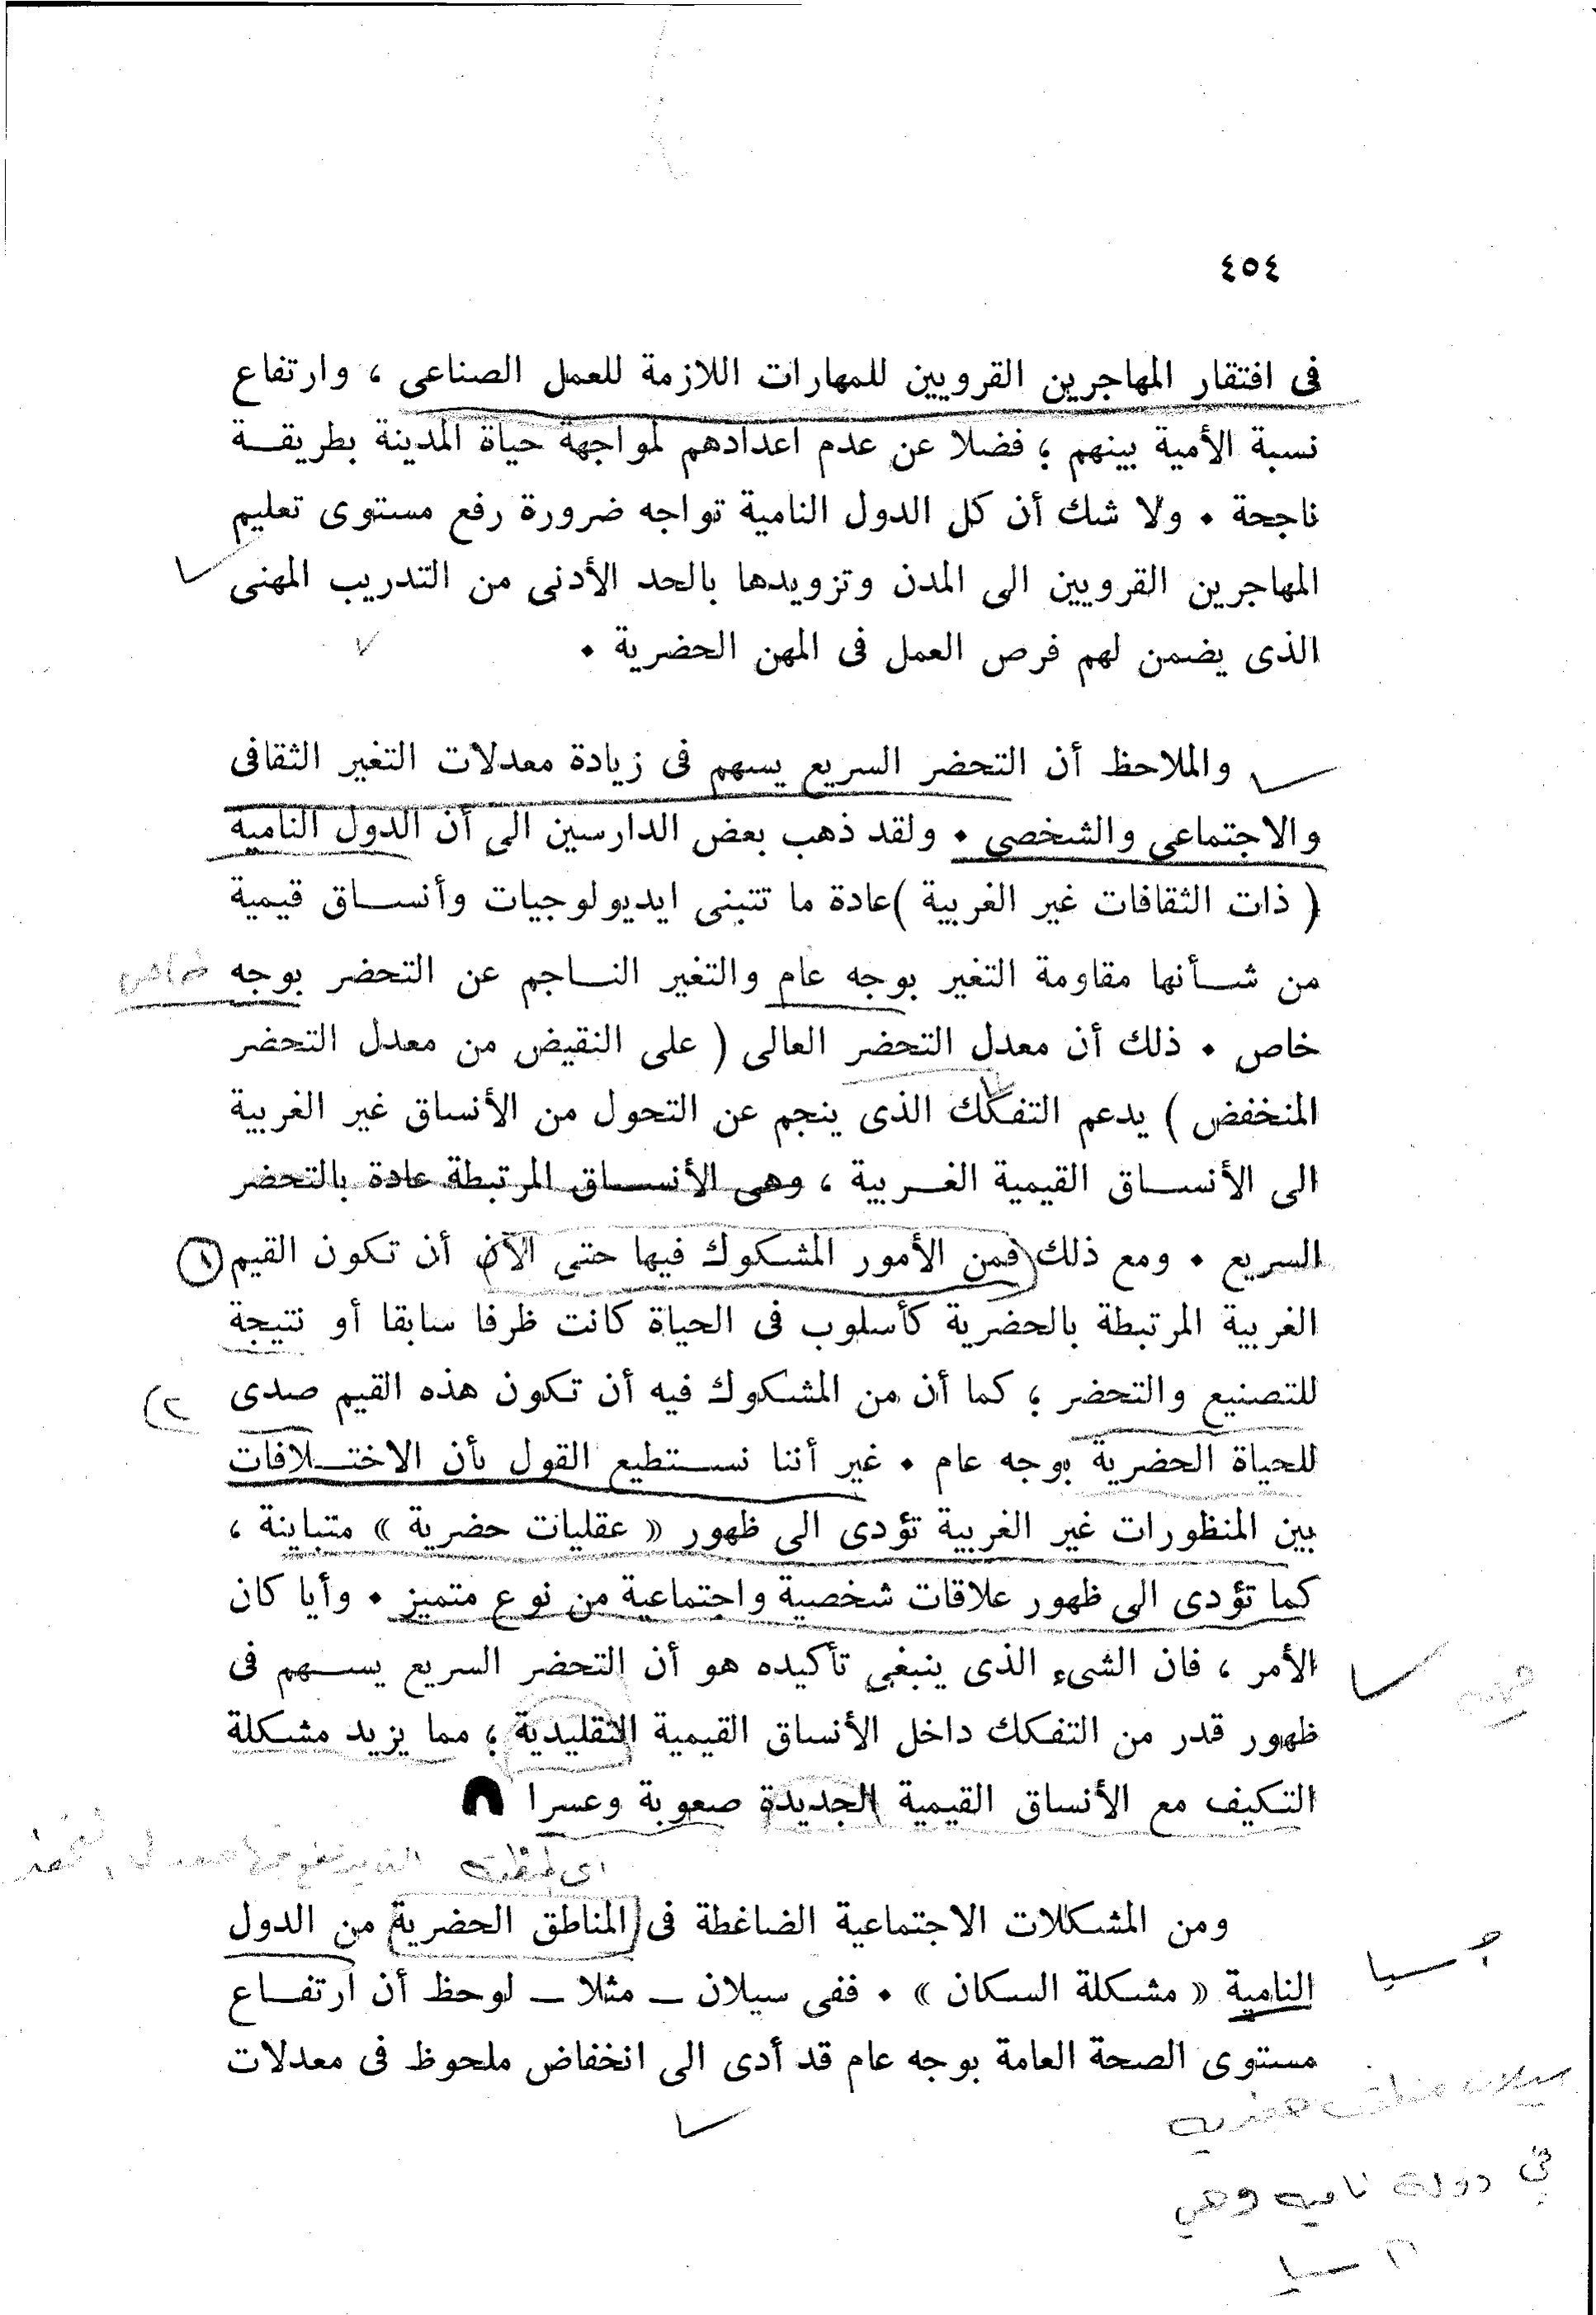 ٤٥٤
فى افتقار المهاجرين القرويين للمهارات اللازمة للعمل الصناعى ، وارتفاع
نسبة الأمية بينهم ، فضلا عن عدم اعدادهم لمواجهة حياة المدينة بطريقــة
ناجحة ٠ ولا شك أن كل الدول النامية تواجه ضرورة رفع مستوى تعليم
المهاجرين القرويين الى المدن وتزويدها بالحد الأدنى من التدريب المهنى
الذى يضمن لهم فرص العمل فى المهن الحضرية ٠
والملاحظ أن التحضر السريع يسهم فى زيادة معدلات التغير الثقافى
والاجتماعى والشخصى ٠ ولقد ذهب بعض الدارسين الى أن الدول النامية
( ذات الثقافات غير الغربية )عادة ما تتبنى ايديولوجيات وأنســاق قيمية
من شــأنها مقاومة التغير بوجه عام والتغير النــاجم عن التحضر بوجه خاص
خاص ٠ ذلك أن معدل التحضر العالى ( على النقيض من معدل التحضر
المنخفض ) يدعم التفكك الذى ينجم عن التحول من الأنساق غير الغربية
الى الأنســاق القيمية الغــربية ، وهى الأنســاق المرتبطة عادة بالتحضر
السريع ٠ ومع ذلك (فمن الأمور المشكوك فيها حتى الآن أن تكون القيم (١)
الغربية المرتبطة بالحضرية كأسلوب فى الحياة كانت ظرفا سابقا أو نتيجة
للتصنيع والتحضر ، كما أن من المشكوك فيه أن تكون هذه القيم صدى (٢
للحياة الحضرية بوجه عام ٠ غير أننا نســتطيع القول بأن الاختــلافات
بين المنظورات غير الغربية تؤدى الى ظهور « عقليات حضرية » متباينة ،
كما تؤدى الى ظهور علاقات شخصية واجتماعية من نوع متميز ٠ وأيا كان
الأمر ، فان الشىء الذى ينبغى تأكيده هو أن التحضر السريع يســهم فى
ظهور قدر من التفكك داخل الأنساق القيمية التقليدية ، مما يزيد مشكلة
التكيف مع الأنساق القيمية الجديدة صعوبة وعسرا
ومن المشكلات الاجتماعية الضاغطة فى المناطق الحضرية من الدول
النامية « مشكلة السكان » ٠ ففى سيلان ــ مثلا ــ لوحظ أن ارتفــاع
مستوى الصحة العامة بوجه عام قد أدى الى انخفاض ملحوظ فى معدلات
سيلان منطقه حضريه
في دولة ناميه وهي